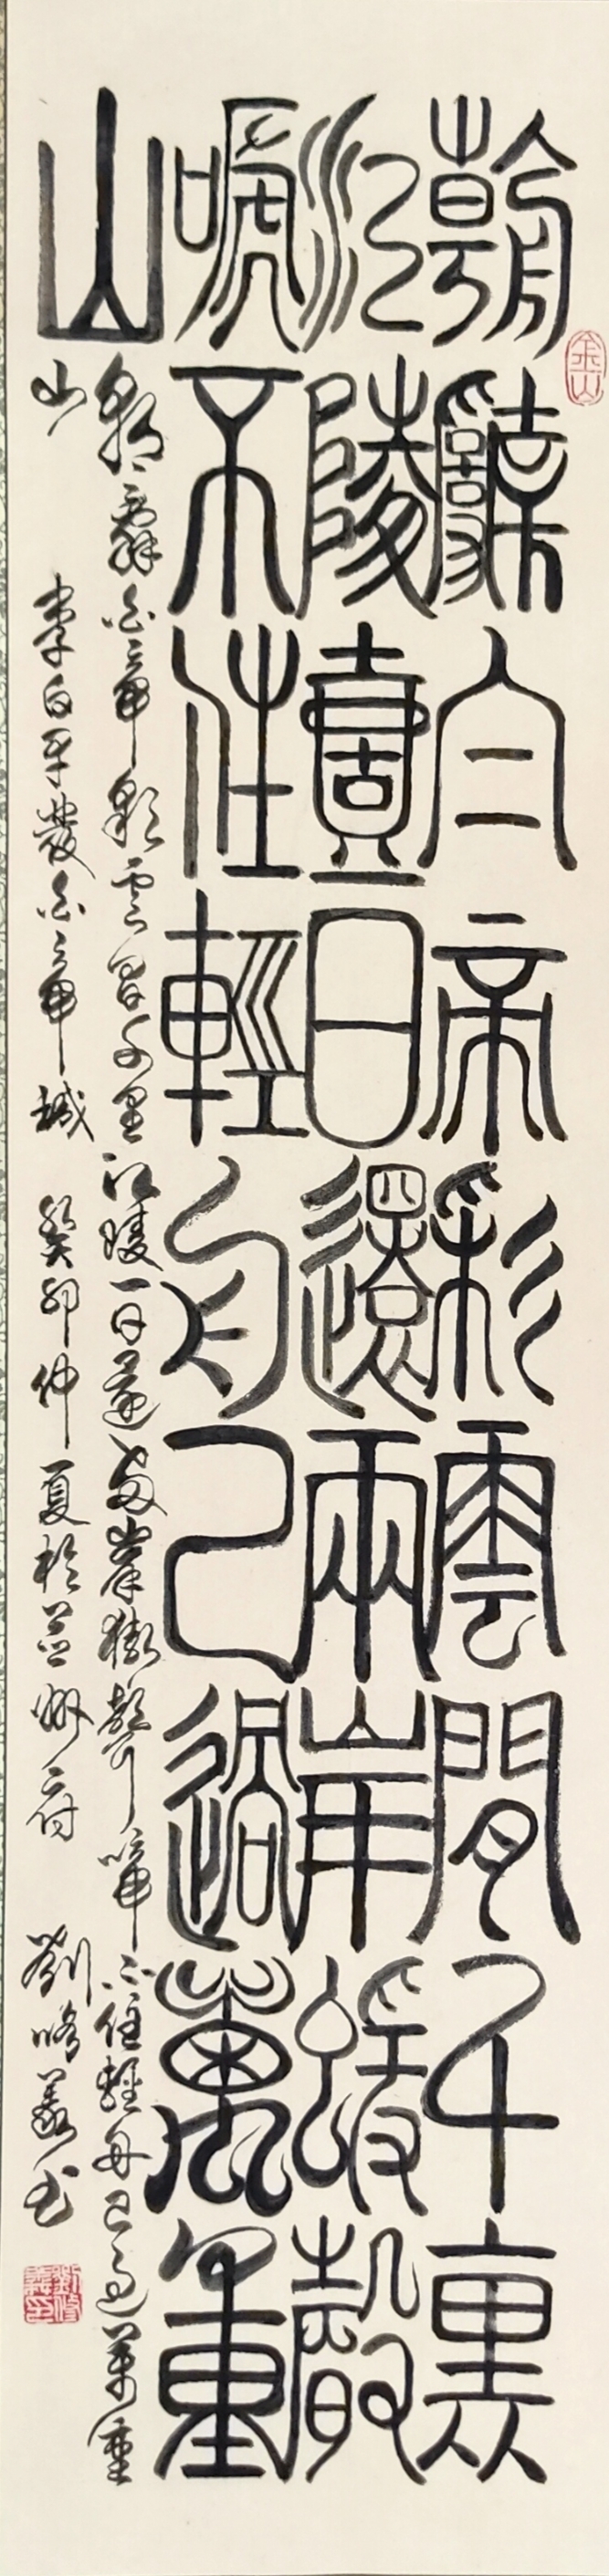 金山
朝辭白帝彩雲間千裏
江陵壹日還兩岸蝯聲
嗁不住輕舟已過萬重
山
朝辭白帝彩雲間千里江陵一日還兩岸猿聲啼不住輕舟已過萬重
山 李白早發白帝城 癸卯仲夏於益州府 劉脩義书